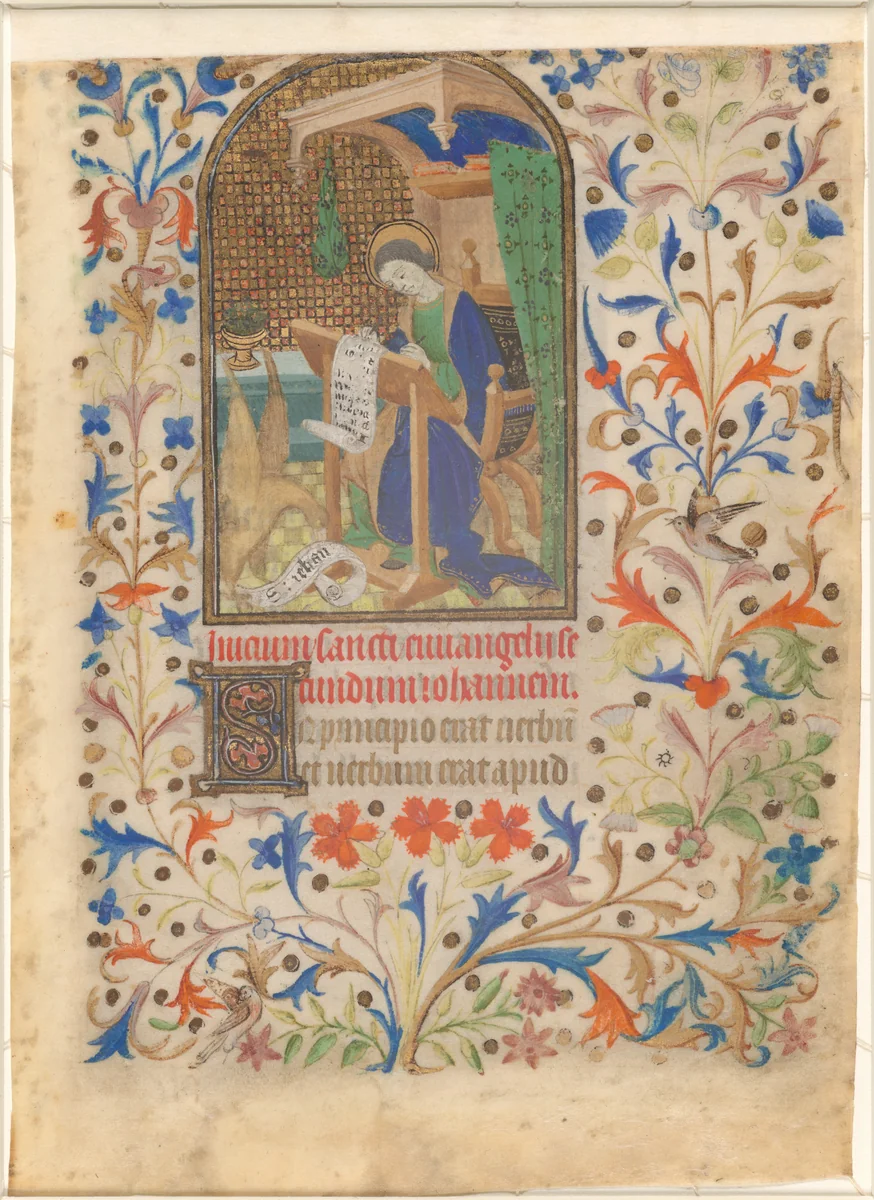 S. iehan
Inicium sancti euuangelij se
cundum iohannem.
IN principio erat uerbū
et uerbum erat apud